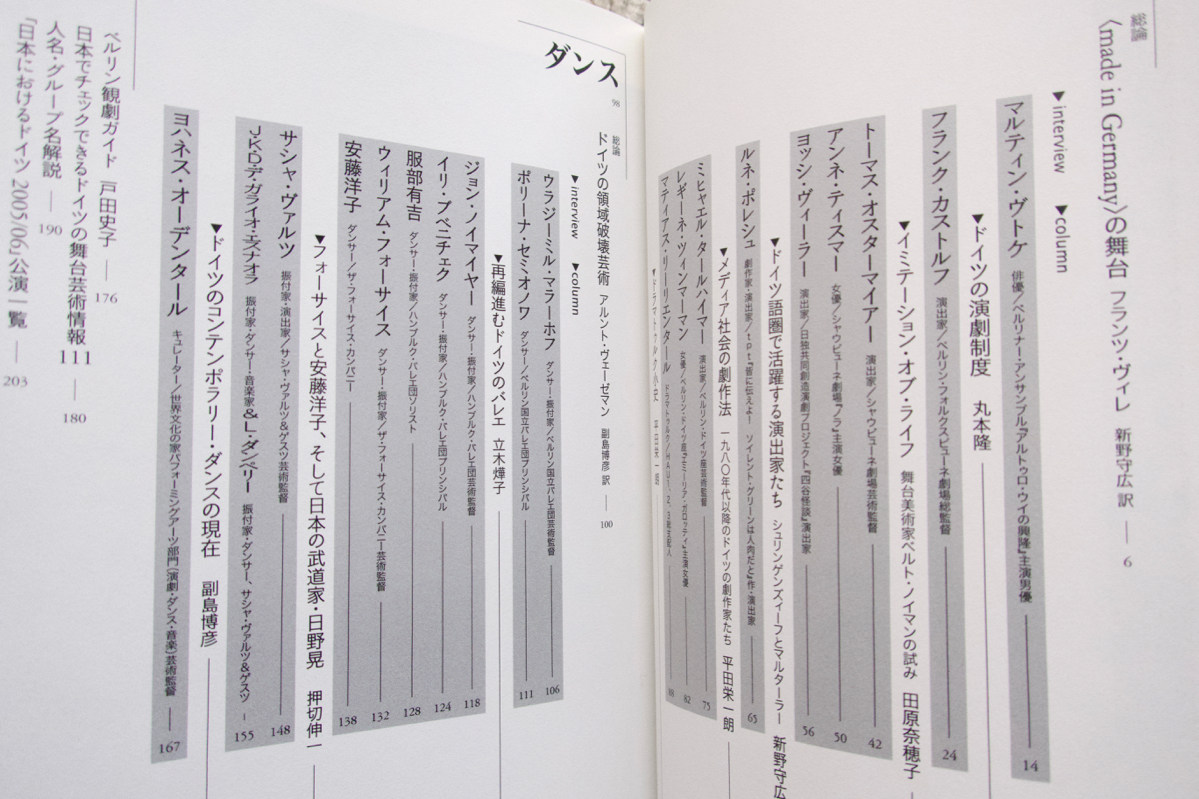 総論
〈made in Germany〉の舞台 フランツ・ヴィレ 新野守広 訳 — 6
▼interview ▼column
マルティン・ヴトケ 俳優／ベルリナー・アンサンブル『アルトゥロ・ウイの興隆』主演男優 14
▼ドイツの演劇制度 丸本隆
フランク・カストルフ 演出家／ベルリン・フォルクスビューネ劇場総監督 24
▼イミテーション・オブ・ライフ 舞台美術家ベルト・ノイマンの試み 田原奈穂子
トーマス・オスターマイアー 演出家／シャウビューネ劇場芸術監督 42
アンネ・ティスマー 女優／シャウビューネ劇場『ノラ』主演女優 50
ヨッシ・ヴィーラー 演出家／日独共同創造演劇プロジェクト『四谷怪談』演出家 56
▼ドイツ語圏で活躍する演出家たち シュリンゲンズィーフとマルターラー 新野守広
ルネ・ポレシュ 劇作家・演出家／tpt『皆に伝えよ！ ソイレント・グリーンは人肉だと』作・演出家 65
▼メディア社会の劇作法 一九八〇年代以降のドイツの劇作家たち 平田栄一朗
ミヒャエル・タールハイマー 演出家／ベルリン・ドイツ座芸術監督 75
レギーネ・ツィンマーマン 女優／ベルリン・ドイツ座『エミーリア・ガロッティ』主演女優 82
マティアス・リーリエンタール ドラマトゥルク／HAU1、2、3総支配人 88
ダンス
98
総論
ドイツの領域破壊芸術 アルント・ヴェーゼマン 副島博彦 訳 — 100
▼interview ▼column
ウラジーミル・マラーホフ ダンサー・振付家／ベルリン国立バレエ団芸術監督 106
ポリーナ・セミオノワ ダンサー／ベルリン国立バレエ団プリンシパル 111
▼再編進むドイツのバレエ 立木燁子
ジョン・ノイマイヤー ダンサー・振付家／ハンブルク・バレエ団芸術監督 118
イリ・ブベニチェク ダンサー・振付家／ハンブルク・バレエ団プリンシパル 124
服部有吉 ダンサー・振付家／ハンブルク・バレエ団ソリスト 128
ウィリアム・フォーサイス ダンサー・振付家／ザ・フォーサイス・カンパニー芸術監督 132
安藤洋子 ダンサー／ザ・フォーサイス・カンパニー 138
▼フォーサイスと安藤洋子、そして日本の武道家・日野晃 押切伸一
サシャ・ヴァルツ 振付家・演出家／サシャ・ヴァルツ&ゲスツ芸術監督 148
J・K・D・デ・ガライオ・エスナオラ 振付家・ダンサー・音楽家&L・ダンベリー 振付家・ダンサー、サシャ・ヴァルツ&ゲスツ — 155
▼ドイツのコンテンポラリー・ダンスの現在 副島博彦
ヨハネス・オーデンタール キュレーター／世界文化の家パフォーミングアーツ部門（演劇・ダンス・音楽）芸術監督 — 167
ベルリン観劇ガイド 戸田史子 — 176
日本でチェックできるドイツの舞台芸術情報111 — 180
人名・グループ名解説 — 190
「日本におけるドイツ 2005/06」公演一覧 — 203